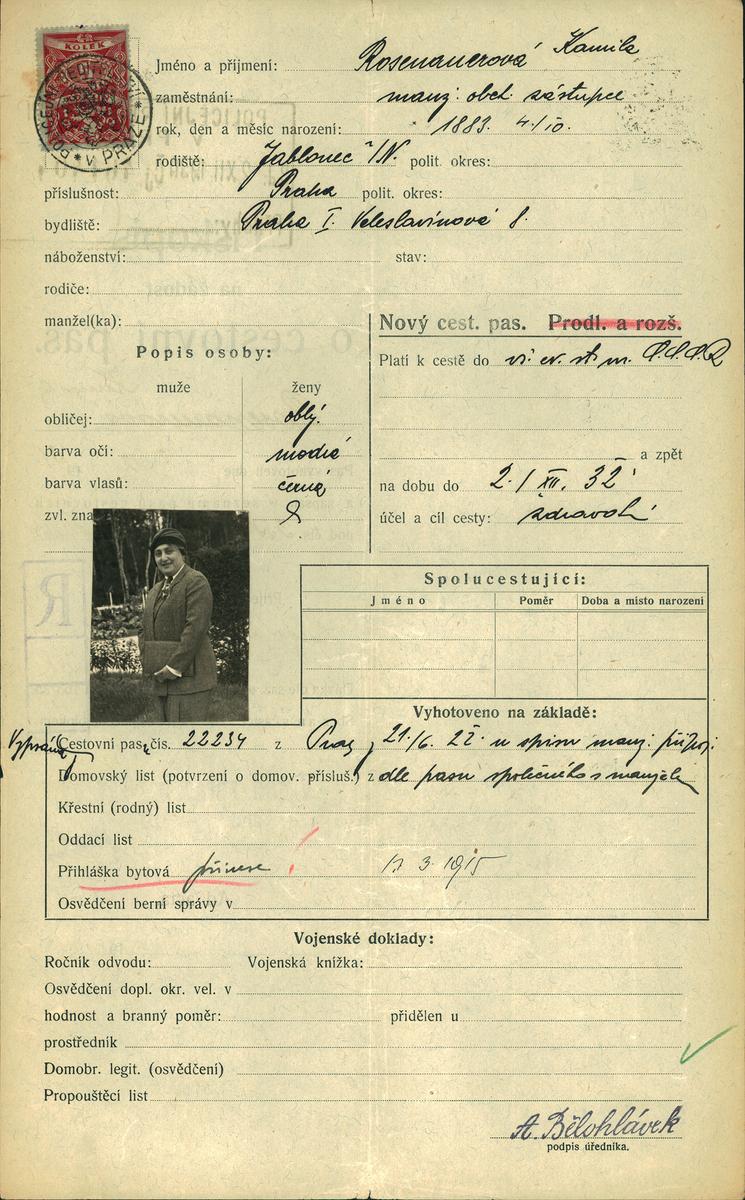 KOLEK
V PRAZE
Jméno a příjmení: Rosenauerová Kamila
zaměstnání: manž. obch. zástupce
rok, den a měsíc narození: 1883. 4/10.
rodiště: Jablonec n/N. polit. okres:
příslušnost: Praha polit. okres:
bydliště: Praha I. Veleslavínova 8.
náboženství: stav:
rodiče:
manžel(ka):
Popis osoby:
muže ženy
obličej: oblý.
barva očí: modré
barva vlasů: černá
zvl. zna
Nový cest. pas. Prodl. a rozš.
Platí k cestě do vš. ev. st. m. S.S.S.R
a zpět
na dobu do 2./XII. 32
účel a cíl cesty: zdravotní
R
Spolucestující:
Jméno Poměr Doba a místo narození
Vyhotoveno na základě:
Cestovní pas čís. 22234 z Prag, 21./6. u spisu manž.
Domovský list (potvrzení o domov. přísluš.) z dle pasu společného s manželem
Křestní (rodný) list
Oddací list
Přihláška bytová přinese 3. 1915
Osvědčení berní správy v
Vojenské doklady:
Ročník odvodu: Vojenská knížka:
Osvědčení dopl. okr. vel. v
hodnost a branný poměr: přidělen u
prostředník
Domobr. legit. (osvědčení)
Propouštěcí list
A. Bělohlávek
podpis úředníka.